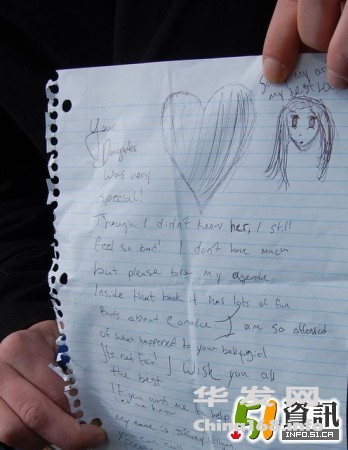 my best
Your
Daughter
was very
special!
Though I didn't know her, I still
feel so bad! I don't have much
but please take my agenda.
Inside that book it has lots of fun
facts about Canada. I am so offended
of what happened to your baby girl
It's not fair I wish you all
the best.
If you want me to help
let me know
my name is
you can call
华发网
51資訊
INFO.51.CA